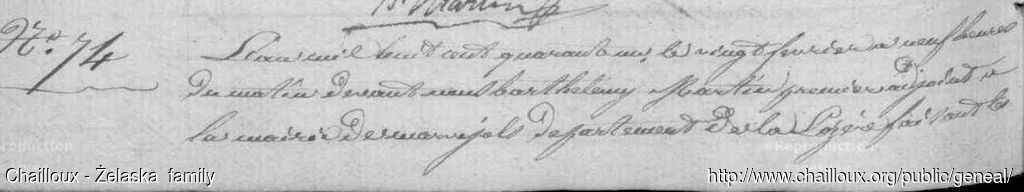 Bt Martin
No. 74
L'an mil huit cent quarante un, le vingt fevrier a neuf heures
du matin devant nous barthelemy Martin premier adjoint a
la mairie de marvejols departement de la Lozère faisant les
Reproduction
Reproduction
Chailloux - Żelaska family
http://www.chailloux.org/public/geneal/